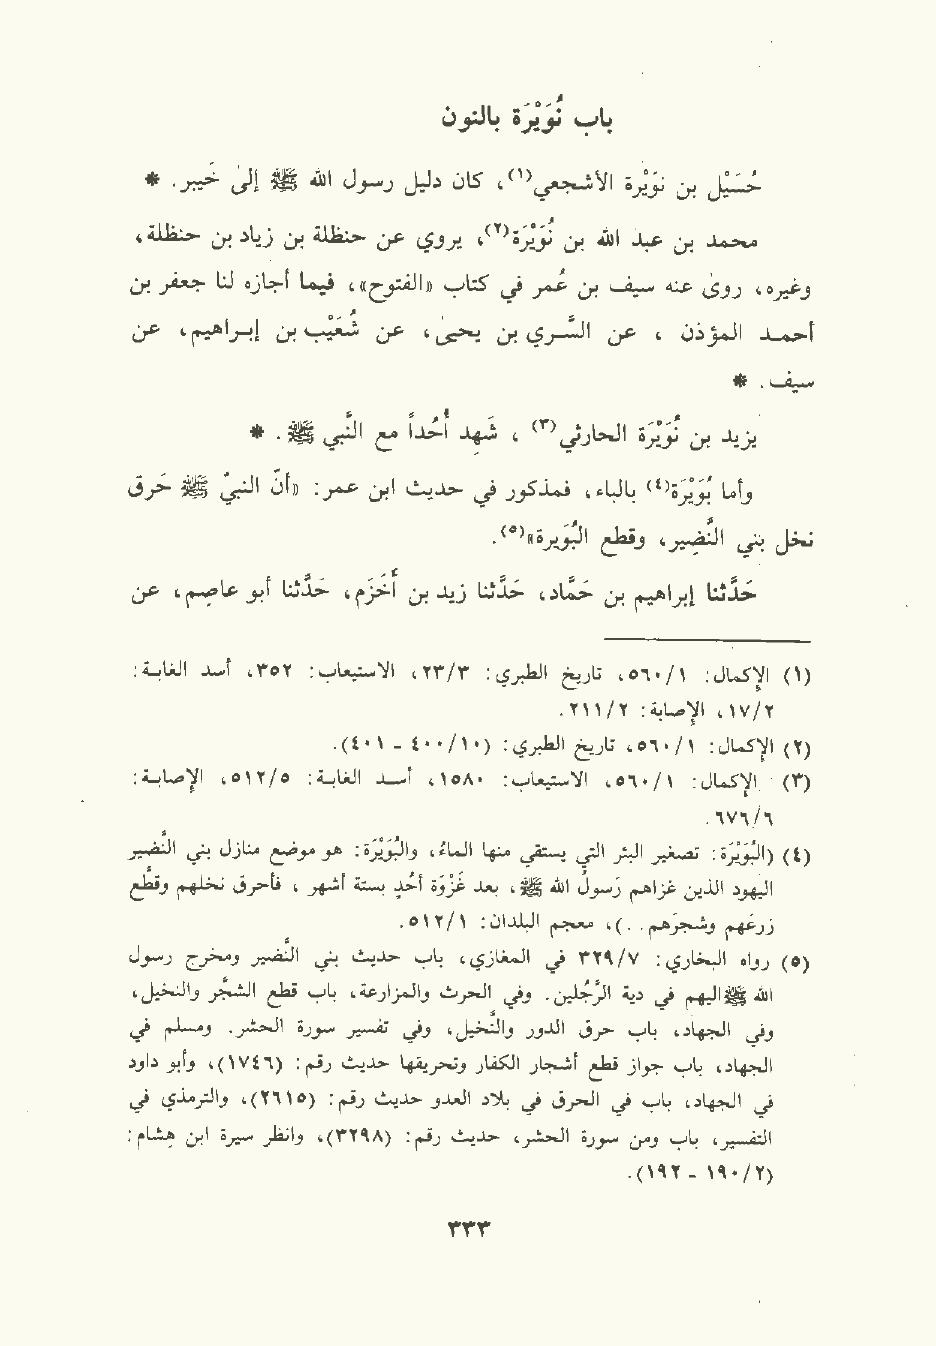 باب نُوَيْرَة بالنون
حُسَيْل بن نوَيْرة الأشجعي(١)، كان دليل رسول الله ﷺ إلىٰ خَيبر. *
محمد بن عبد الله بن نُوَيْرَة(٢)، يروي عن حنظلة بن زياد بن حنظلة،
وغيره، روىٰ عنه سيف بن عُمر في كتاب «الفتوح»، فيما أجازه لنا جعفر بن
أحمد المؤذن ، عن السَّري بن يحيىٰ، عن شُعَيْب بن إبراهيم، عن
سيف. *
يزيد بن نُوَيْرَة الحارثي(٣) ، شَهِد أُحُداً مع النَّبي ﷺ. *
وأما بُوَيْرَة(٤) بالباء، فمذكور في حديث ابن عمر: «أنّ النبيّ ﷺ حَرق
نخل بني النَّضِير، وقطع البُوَيرة»(٥).
حَدَّثنا إبراهيم بن حَمَّاد، حَدَّثنا زيد بن أَخَزَم، حَدَّثنا أبو عاصِم، عن
(١) الإكمال: ٥٦٠/١، تاريخ الطبري: ٢٣/٣، الاستيعاب: ٣٥٢، أسد الغابة:
١٧/٢، الإصابة: ٢١١/٢.
(٢) الإكمال: ٥٦٠/١، تاريخ الطبري: (٤٠٠/١٠ - ٤٠١).
(٣) الإكمال: ٥٦٠/١، الاستيعاب: ١٥٨٠، أسد الغابة: ٥١٢/٥، الإصابة:
٦٧٦/٦.
(٤) (البُوَيْرَة: تصغير البئر التي يستقي منها الماُء، والبُوَيْرَة: هو موضع منازل بني النَّضير
اليهود الذين غزاهم رَسولُ الله ﷺ، بعد غَزْوَة أُحُدٍ بستة أشهر ، فأحرق نخلهم وقطَع
زرعَهم وشجرَهم. .)، معجم البلدان: ٥١٢/١.
(٥) رواه البخاري: ٣٢٩/٧ في المغازي، باب حديث بني النَّضير ومخرج رسول
الله ﷺ اليهم في دية الرَّجُلين. وفي الحرث والمزارعة، باب قطع الشجَّر والنخيل،
وفي الجهاد، باب حرق الدور والنَّخيل، وفي تفسير سورة الحشر. ومسلم في
الجهاد، باب جواز قطع أشجار الكفار وتحريقها حديث رقم: (١٧٤٦)، وأبو داود
في الجهاد، باب في الحرق في بلاد العدو حديث رقم: (٢٦١٥)، والترمذي في
التفسير، باب ومن سورة الحشر، حديث رقم: (٣٢٩٨)، وانظر سيرة ابن هِشام:
(١٩٠/٢ - ١٩٢).
٣٣٣